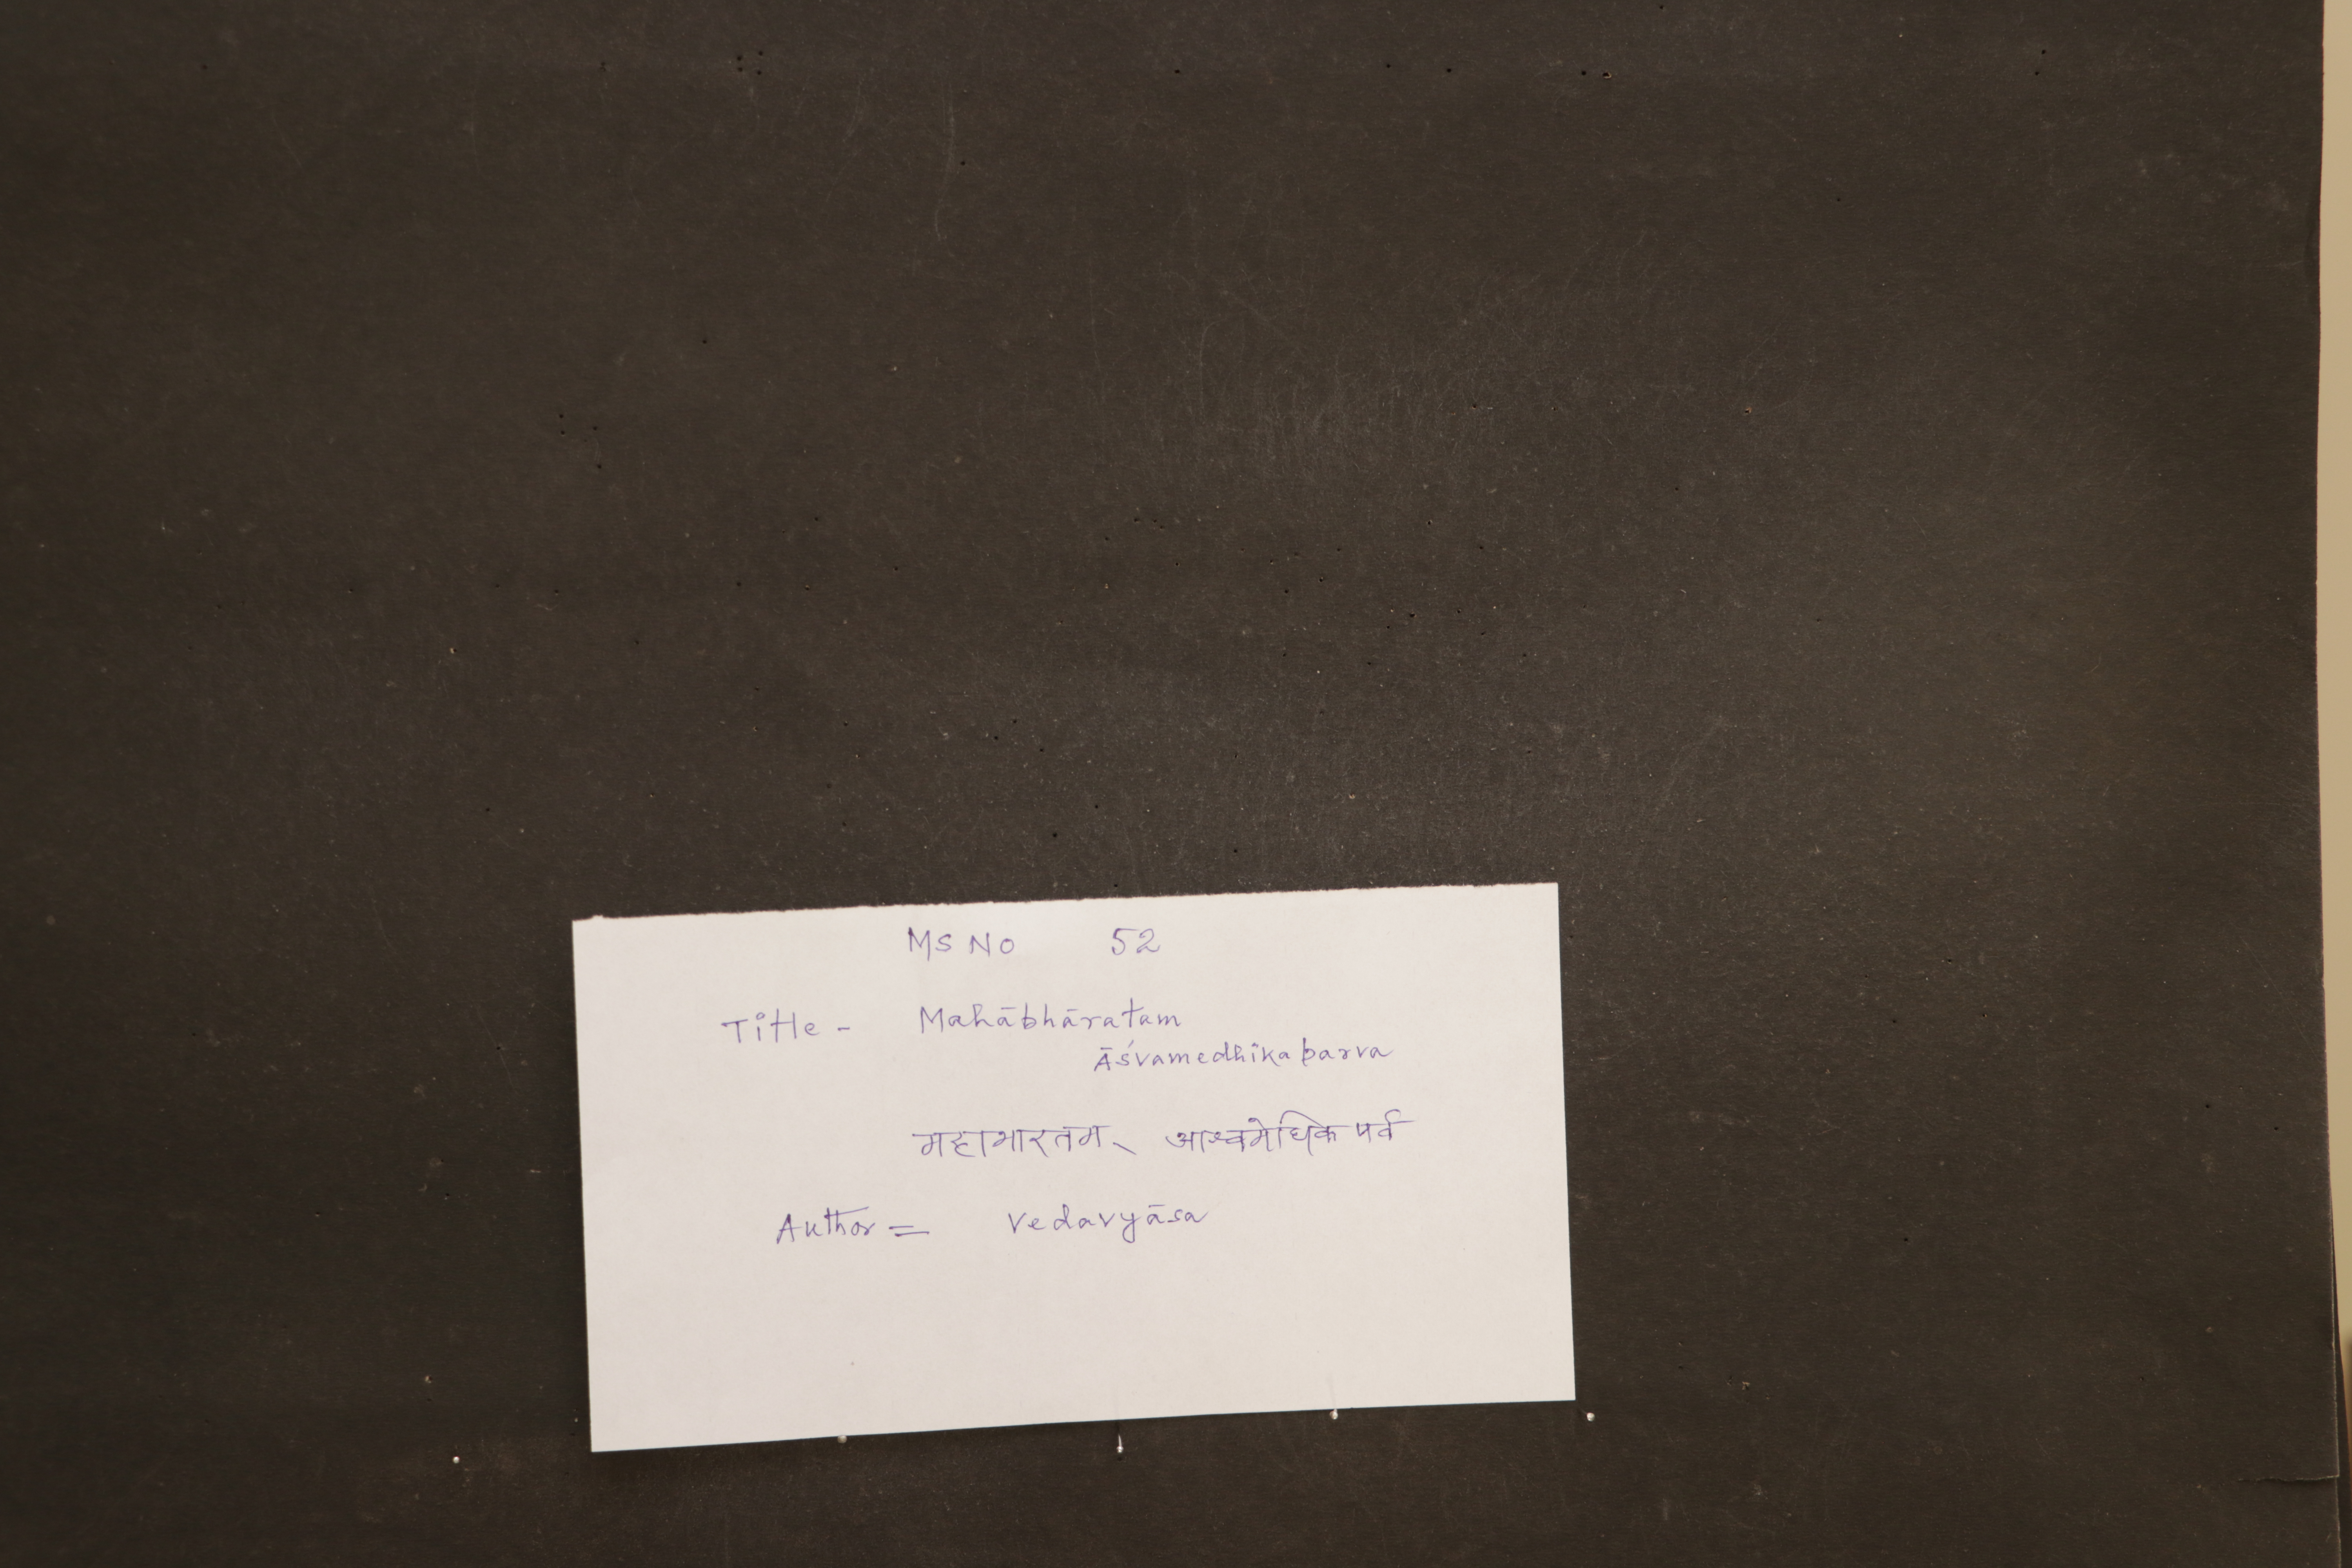 MS No 52
Title - Mahābhāratam
Āśvamedhikaparva
महाभारतम् आश्वमेधिके पर्व
Author = Vedavyāsa